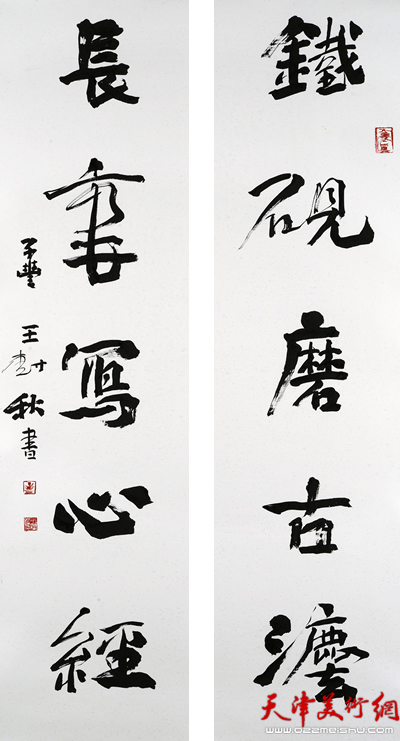 鐵硯磨古灋
長寫心經
子豐 王樹秋書
天津美術網
www.022meishu.com